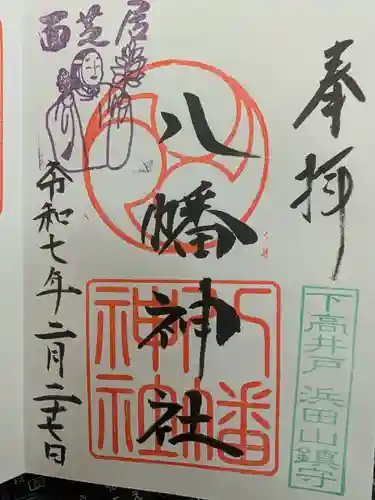 奉拝
下高井戸 浜田山鎮守
八幡神社
八幡神社
面芝居
令和七年二月二十七日